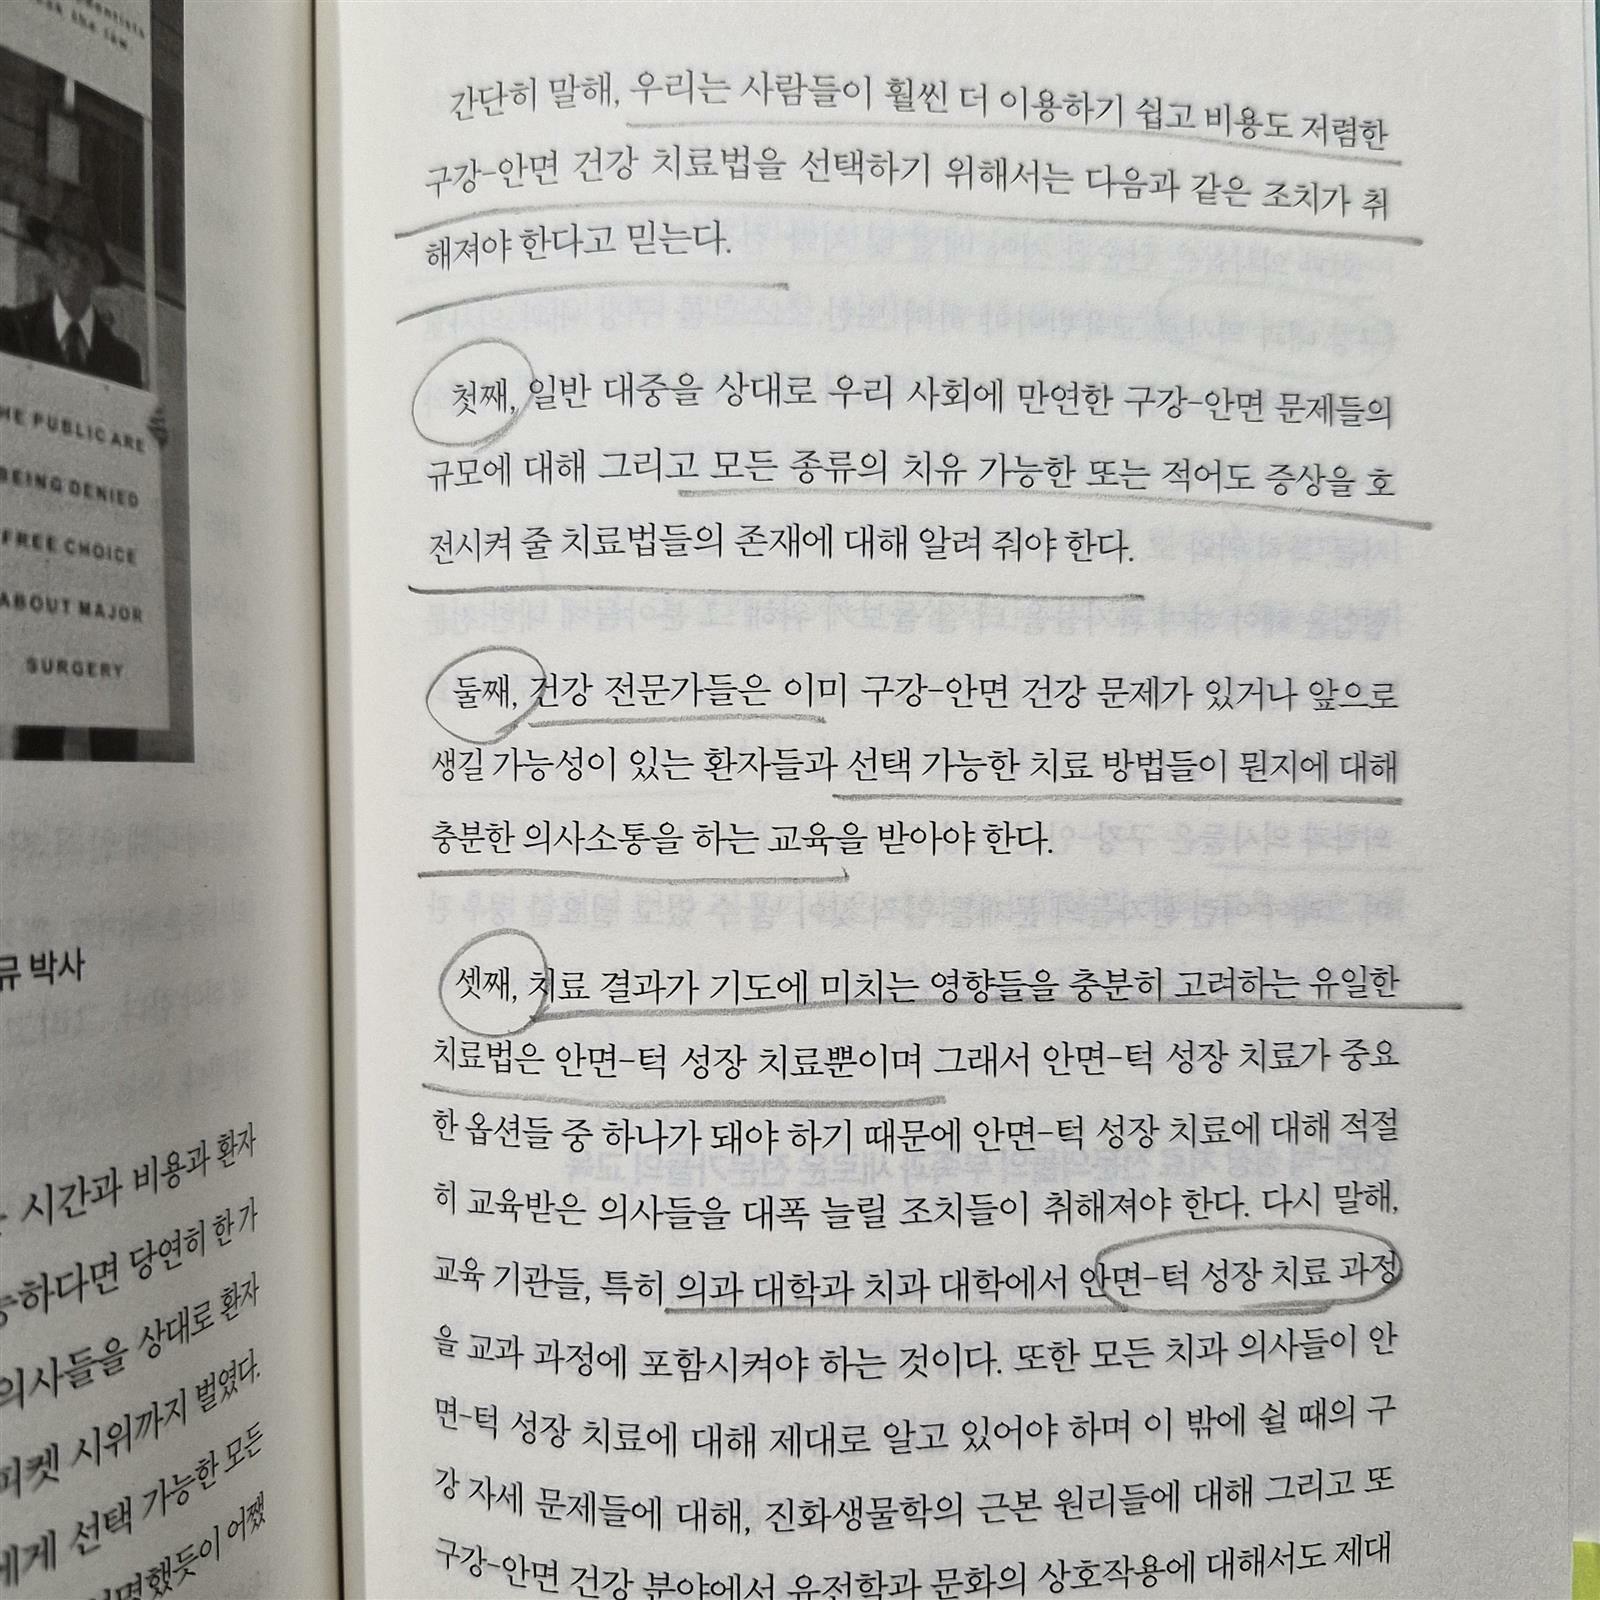 THE PUBLIC ARE
BEING DENIED
FREE CHOICE
ABOUT MAJOR
SURGERY
박사
시간과 비용과 환자
당연히 한 가
의사들을 상대로 환자
피켓 시위까지 벌였다.
선택 가능한 모든
간단히 말해, 우리는 사람들이 훨씬 더 이용하기 쉽고 비용도 저렴한
구강-안면 건강 치료법을 선택하기 위해서는 다음과 같은 조치가 취
해져야 한다고 믿는다.
첫째, 일반 대중을 상대로 우리 사회에 만연한 구강-안면 문제들의
규모에 대해 그리고 모든 종류의 치유 가능한 또는 적어도 증상을 호
전시켜 줄 치료법들의 존재에 대해 알려 줘야 한다.
둘째, 건강 전문가들은 이미 구강-안면 건강 문제가 있거나 앞으로
생길 가능성이 있는 환자들과 선택 가능한 치료 방법들이 뭔지에 대해
충분한 의사소통을 하는 교육을 받아야 한다.
셋째, 치료 결과가 기도에 미치는 영향들을 충분히 고려하는 유일한
치료법은 안면-턱 성장 치료뿐이며 그래서 안면-턱 성장 치료가 중요
한 옵션들 중 하나가 돼야 하기 때문에 안면-턱 성장 치료에 대해 적절
히 교육받은 의사들을 대폭 늘릴 조치들이 취해져야 한다. 다시 말해,
교육 기관들, 특히 의과 대학과 치과 대학에서 안면-턱 성장 치료 과정
을 교과 과정에 포함시켜야 하는 것이다. 또한 모든 치과 의사들이 안
면-턱 성장 치료에 대해 제대로 알고 있어야 하며 이 밖에 쉴 때의 구
강 자세 문제들에 대해, 진화생물학의 근본 원리들에 대해 그리고 또
구강-안면 건강 분야에서 유전학과 문화의 상호작용에 대해서도 제대